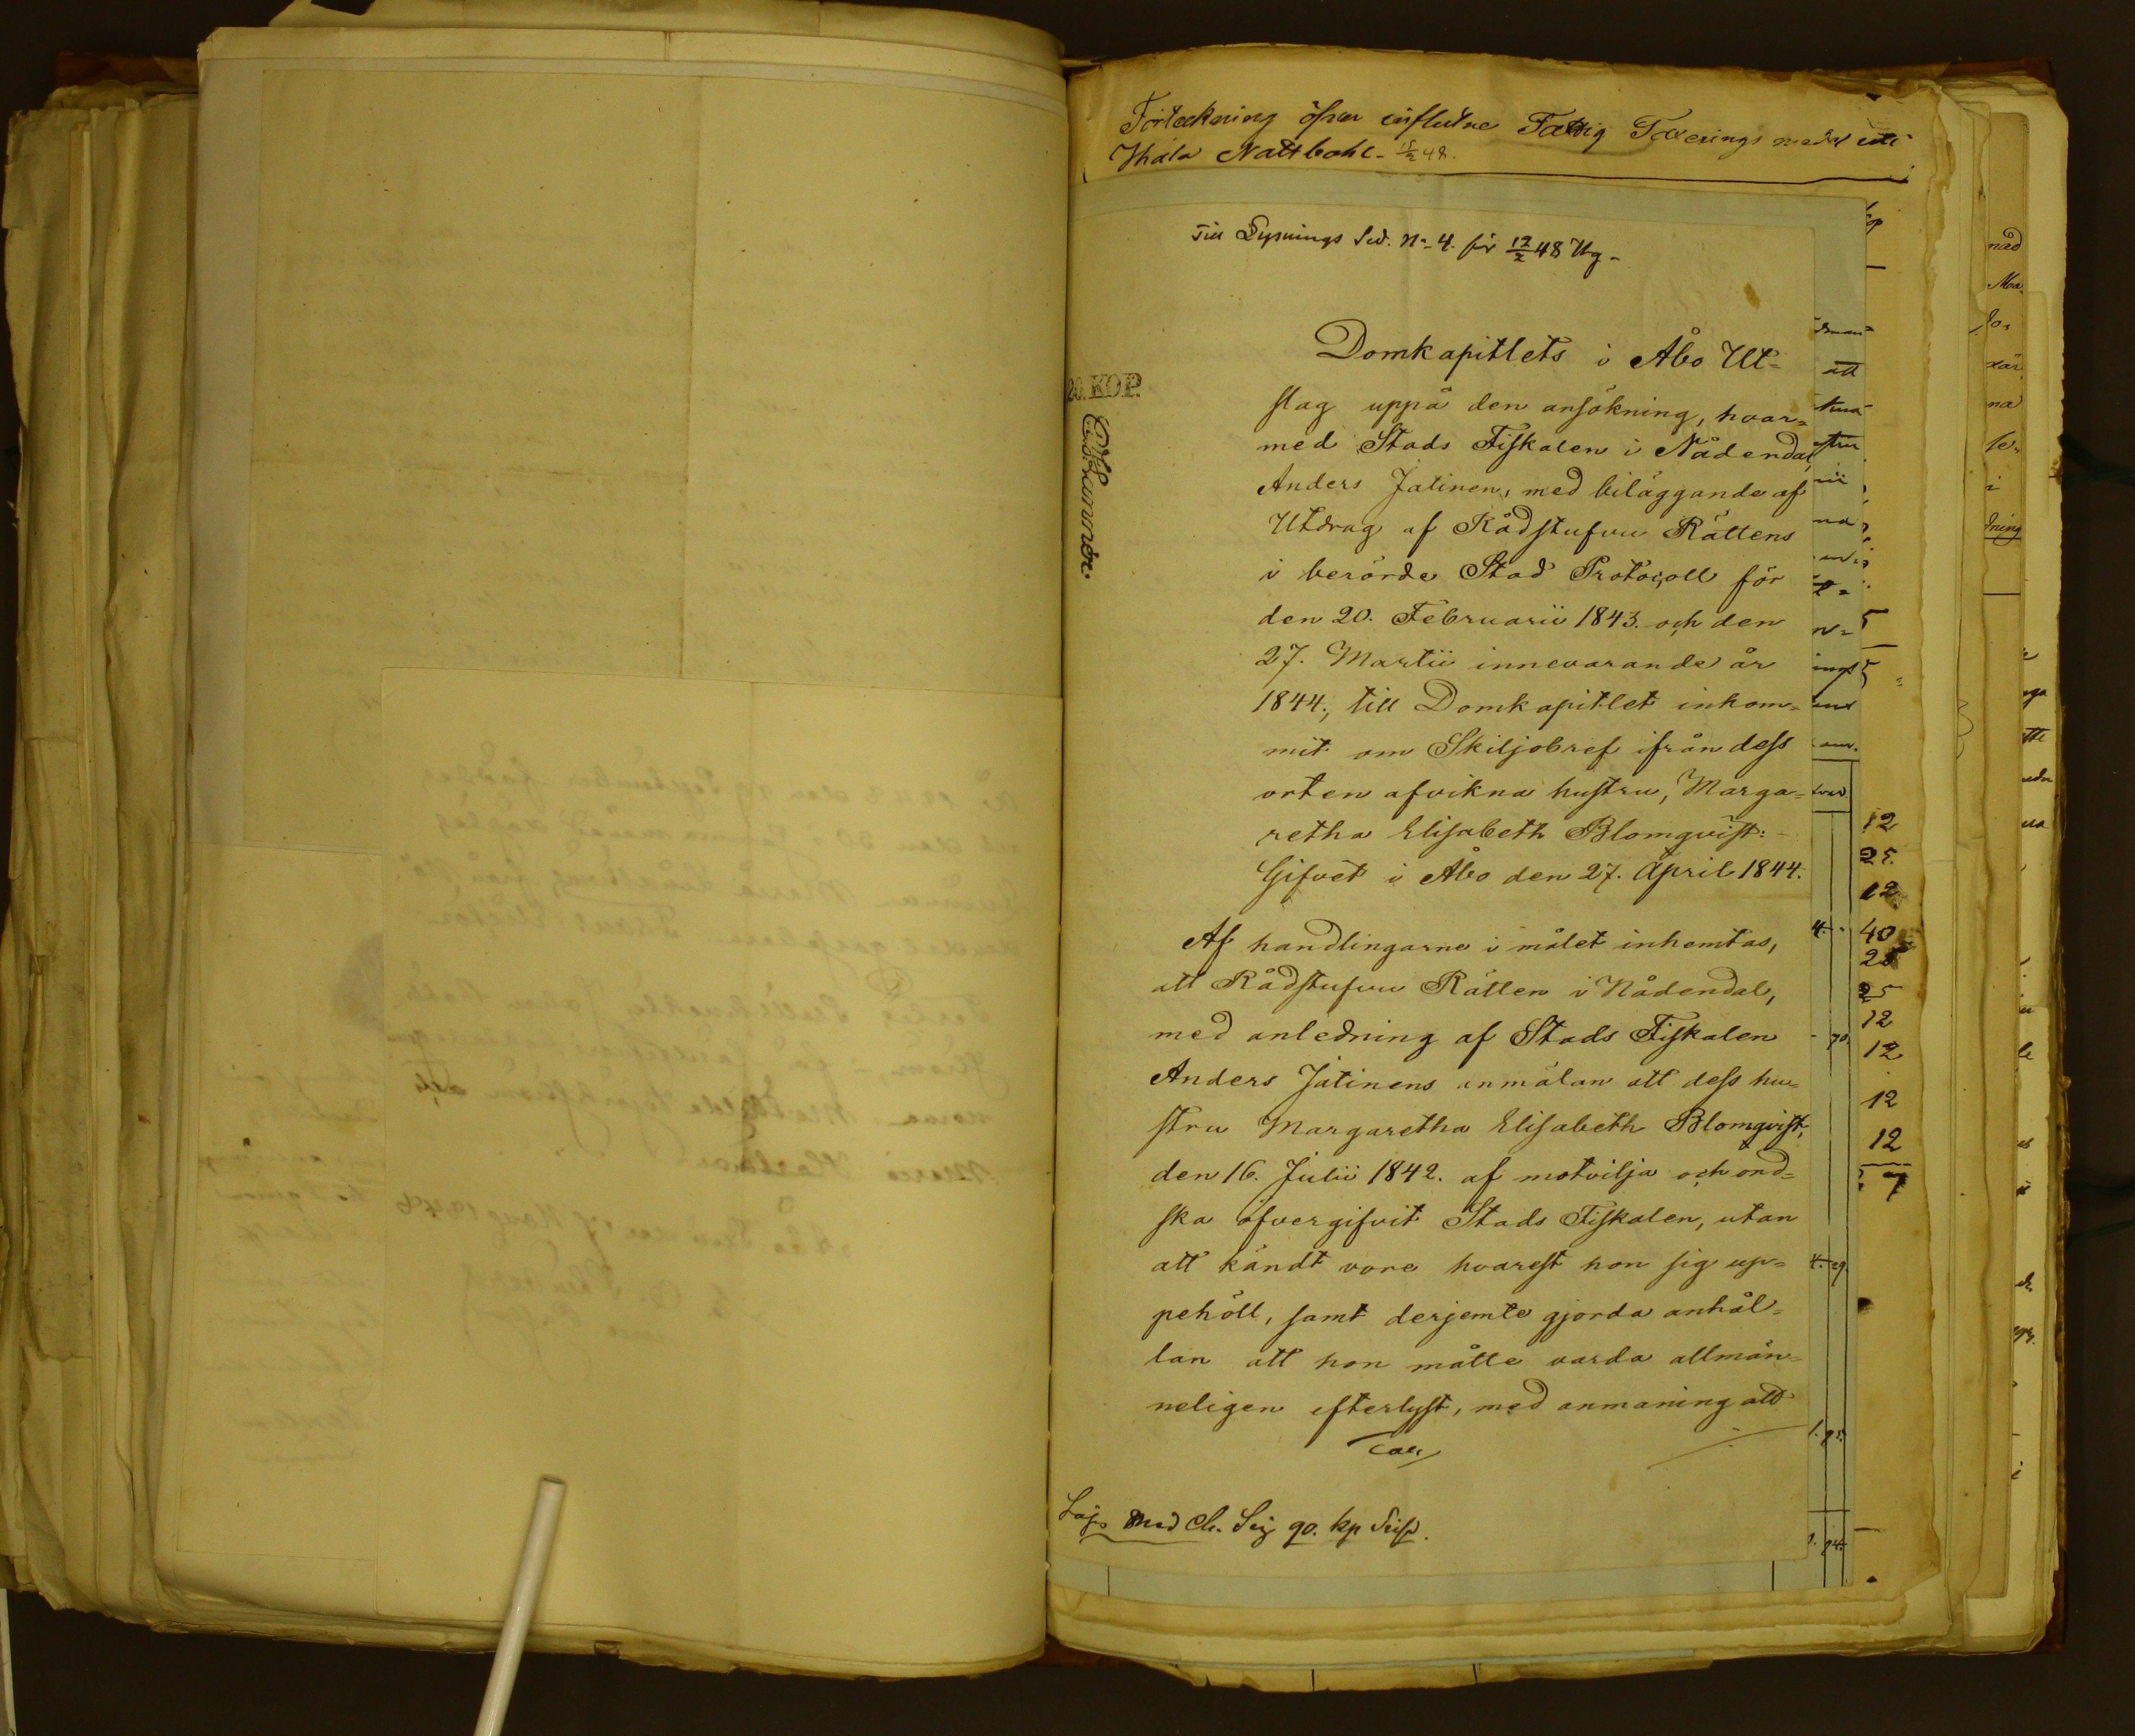 Förteckning öfver influtne Fattig Taxerings medel uti
Ihala Nattbohl - 15/2 48.
Till Lysnings Sed. No 4. för 12/2 48 Ug -
20. KOP.
Domkapitlets i Åbo Ut=
slag uppå den ansökning, hvar=
med Stads Fiskalen i Nådendal,
Anders Jatinen, med biläggande af
Utdrag af Rådstufvu Rättens
i berörde Stad Protocoll för
den 20. Februarii 1843. och den
27. Martii innevarande år
1844., till Domkapitlet inkom=
mit om Skiljobref ifrån dess
orten afvikna hustru, Marga=
retha Elisabeth Blomqvist: -
Gifvet i Åbo den 27. April 1844.
Af handlingarne i målet inhemtas,
att Rådstufvu Rätten i Nådendal,
med anledning af Stads Fiskalen
Anders Jatinens anmälan att dess hu=
stru Margaretha Elisabeth Blomqvist,
den 16. Julii 1842. af motvilja och ond=
ska öfvergifvit Stads Fiskalen, utan
att kändt vore hvarest hon sig up=
pehöll, samt derjemte gjorda anhål=
lan att hon måtte varda allmän=
neligen efterlyst, med anmaning att
12
25.
12
40
25
25
12
12
12
12